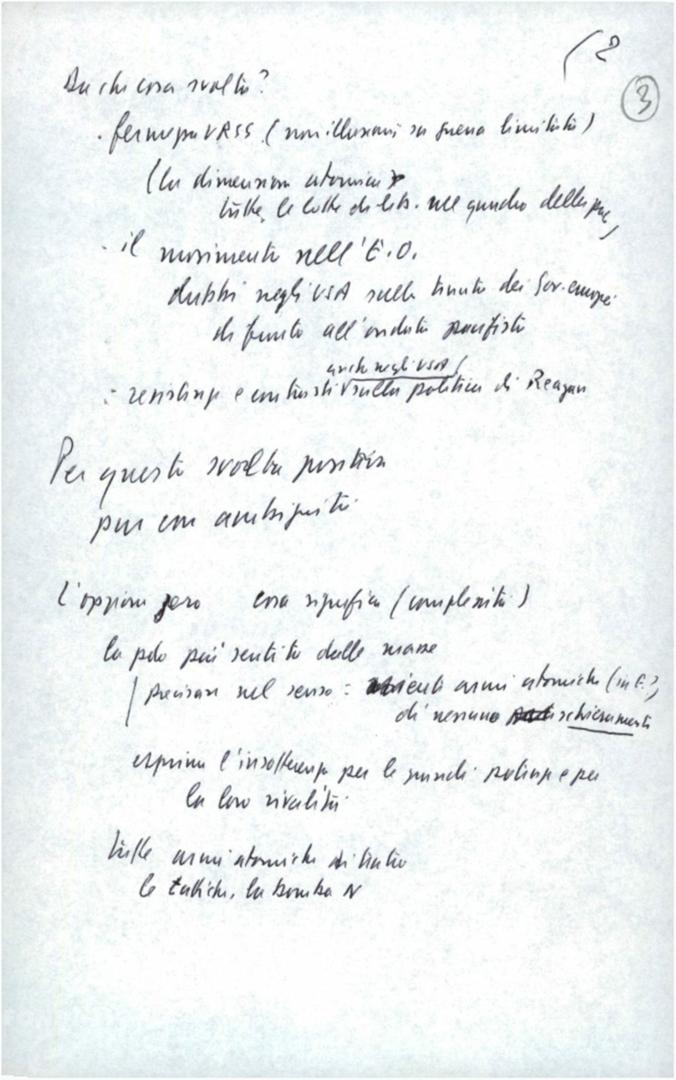 (2
3
Da che cosa svolta?
. fermezza URSS (non illusioni su guerra limitata)
(la dimensione atomica
tutte le lotte di lib. nel quadro della pace
. il movimento nell'E.O.
dubbi negli USA sulla tenuta dei Gov. europei
di fronte all'ondata pacifista
anche negli USA
: resistenze e contrasti sulla politica di Reagan
Per questo svolta positiva
pur con ambiguità
L'opzione zero cosa significa (complessità)
la pdo più sentita dalle masse
precisare nel senso : niente armi atomiche (in E.),
di nessuno schieramento
esprime l'insofferenza per le grandi potenze e per
la loro rivalità
tutte armi atomiche di teatro
le tattiche, la bomba N